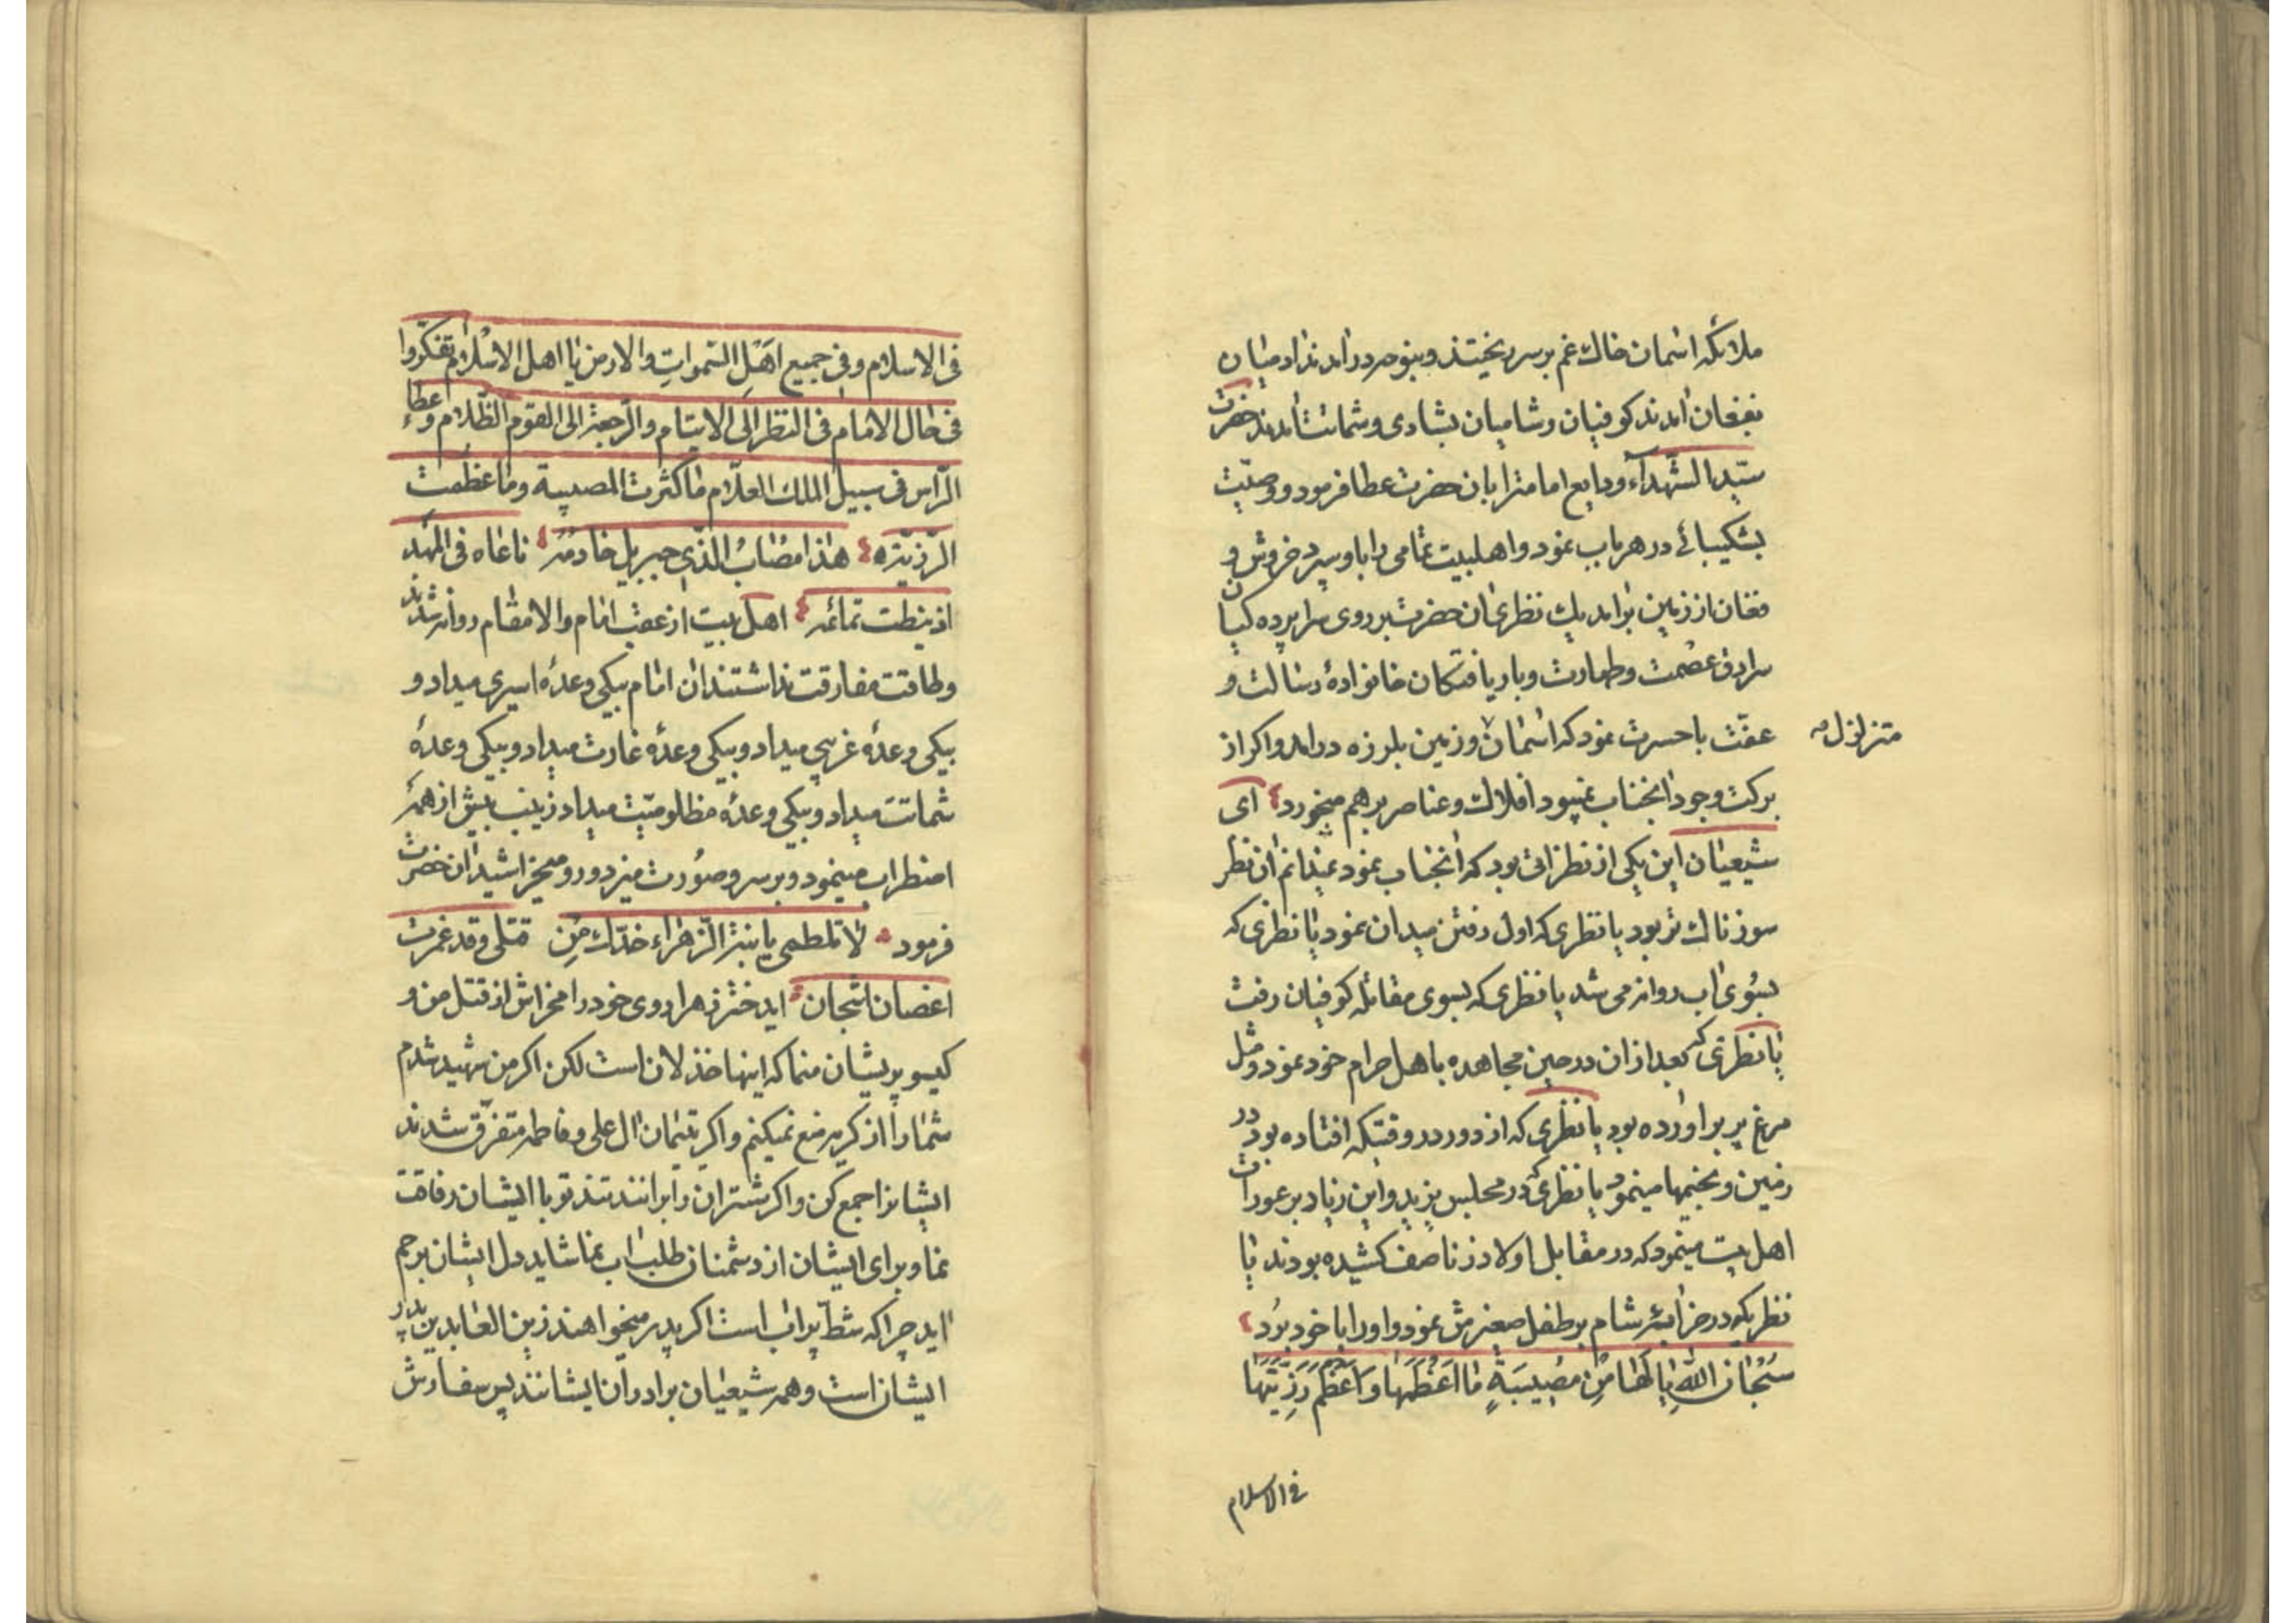 ملائکه اسمان خاك غم بر سر ریختند و بنوحه در امدند ادمیان
بفغان امدند کوفیان و شامیان بشادی و شماتت امدند حضرت
سیّد الشّهدآء ودایع امامترا بان حضرت عطا فرمود و وصیّت
بشکیبائی در هر باب نمود و اهلبیت تمامی را باو سپرد خروش و
فغان از زمین برامد یك نظری ان حضرت بر روی سراپرده کیان
سرادق عصمت و طهارت و بار یافتکان خانوادهٔ رسالت و
عفّت با حسرت نمود که اسمان و زمین بلرزه درامد و اکر از
متزلزل
برکت وجود انجناب نمیبود افلاك و عناصر بر هم میخورد ای
شیعیان این یکی از نظراتی بود که انجناب نمود نمیدانم ان نظر
سوزناك تر بود یا نظری که اول رفتن میدان نمود یا نظری که
بسوی اب روانه می شد یا نظری که بسوی مقاتله کوفیان رفت
یا نظری که بعد از ان در حین مجاهده با اهل حرام خود نمود و مثل
مرغ پر بر اورده بود یا نظری که از دور در وقتیکه افتاده بود در
زمین و بخیمها مینمود یا نظری که در مجلس یزید و ابن زیاد بر عورات
اهل بیت مینمود که در مقابل اولاد زنا صف کشیده بودند یا
نظریکه در خرابهٔ شام بر طفل صغیرش نمود و او را با خود بُرد
سُبْحَانَ اللّٰهِ یا لَهَا مِنْ مُصِیبَةٍ مَا اَعْظَمَهَا وَ اَعْظَمَ رَزِیَّتَهَا
فی الاسلام
فی الاسلام و فی جمیع اَهْلِ السّمواتِ والارض یا اهل الاسْلام تفکّروا
فی حال الامام فی النظر الی الایتام والرّجعة الی القوم الظّلام و اعطاء
الرّاس فی سبیل الملك العلّام ما کثرت المصیبة وما عظمت
الرّزیّة هٰذا مصَابُ الّذی جبریل خادمُهُ ناغاه فی المهد
اذ نیطت تمائمه اهل بیت از عقب امام والامقام روانه شدند
و طاقت مفارقت نداشتند ان امام بیکی وعدهٔ اسیری میداد و
بیکی وعدهٔ غریبی میداد و بیکی وعدهٔ غارت میداد و بیکی وعدهٔ
شماتت میداد و بیکی وعدهٔ مظلومیّت میداد زینب بیش از همه
اضطراب مینمود و بر سر و صُورت میزد و رو میخراشید ان حضرت
فرمود لا تلطمی یا بنة الزّهراء خدّك مِن قتلی وقد غمرت
اغصان اشجان ایدختر زهرا روی خود را مخراش از قتل من و
کیسو پریشان منما که اینها خذلان است لکن اکر من شهید شدم
شمارا از کریه منع نمیکنم و اکر یتیمان ال علی و فاطمه متفرّق شدند
ایشانرا جمع کن و اکر شتران را برانند تند تو با ایشان رفاقت
نما و برای ایشان از دشمنان طلب اب نما شاید دل ایشان برحم
اید چرا که شطّ پر اب است اکر پدر میخواهند زین العابدین پدر
ایشان است و همه شیعیان برادران ایشانند پس سفارش